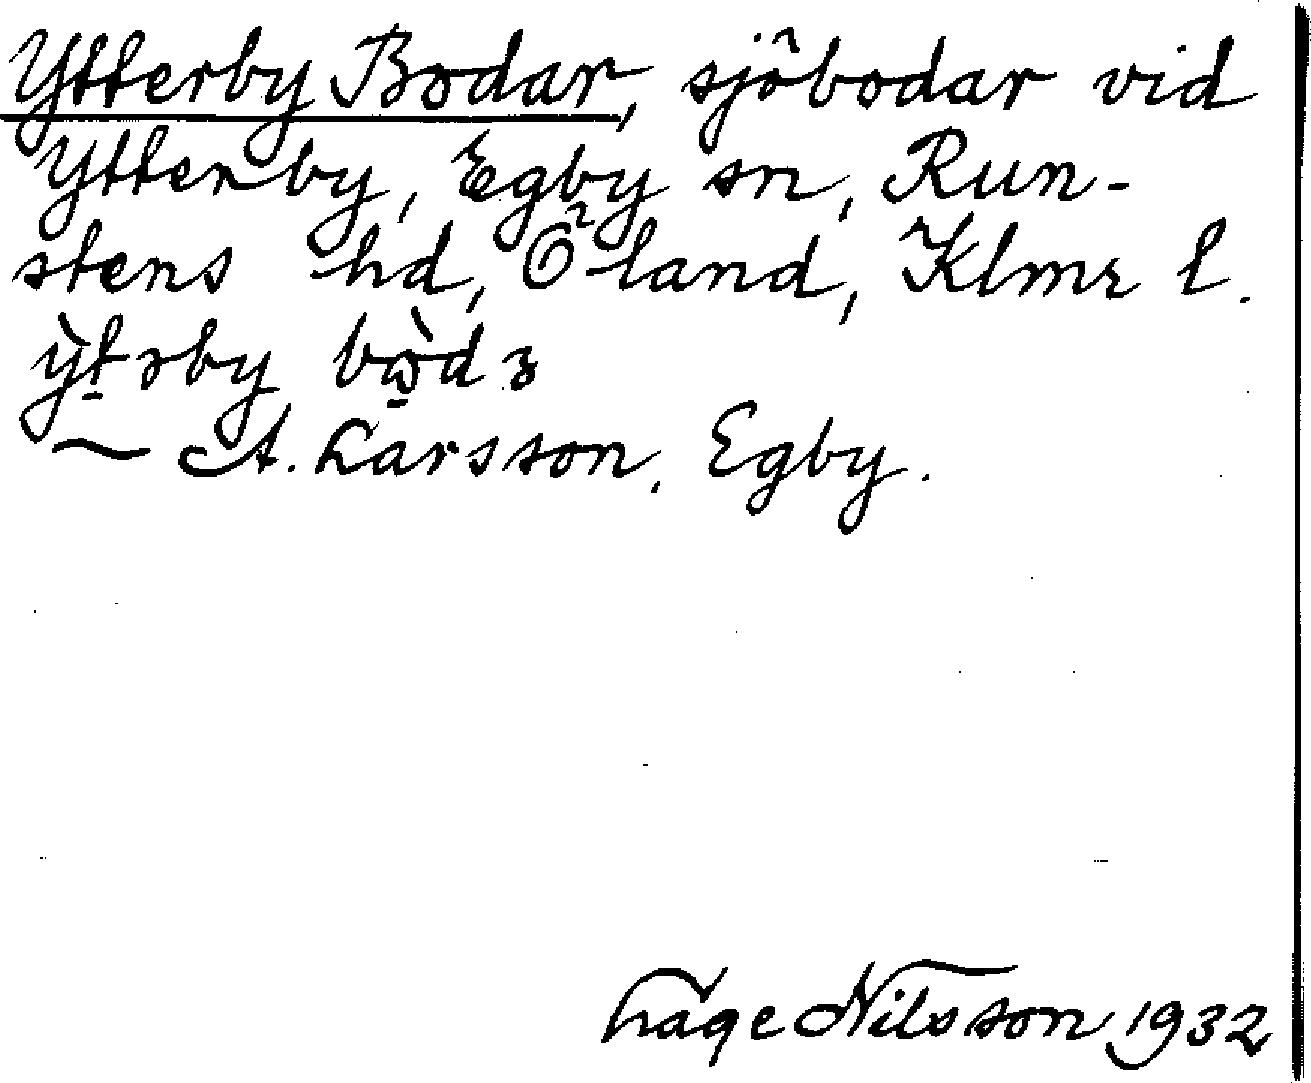 Ytterby Bodar, sjöbodar vid
Ytterby, Egby sn, Run-
stens hd, Öland, Klmr l.
ỳt̠ɘby bὼ̠dɜ
~ A. Larsson, Egby.
Hage Nilsson 1932